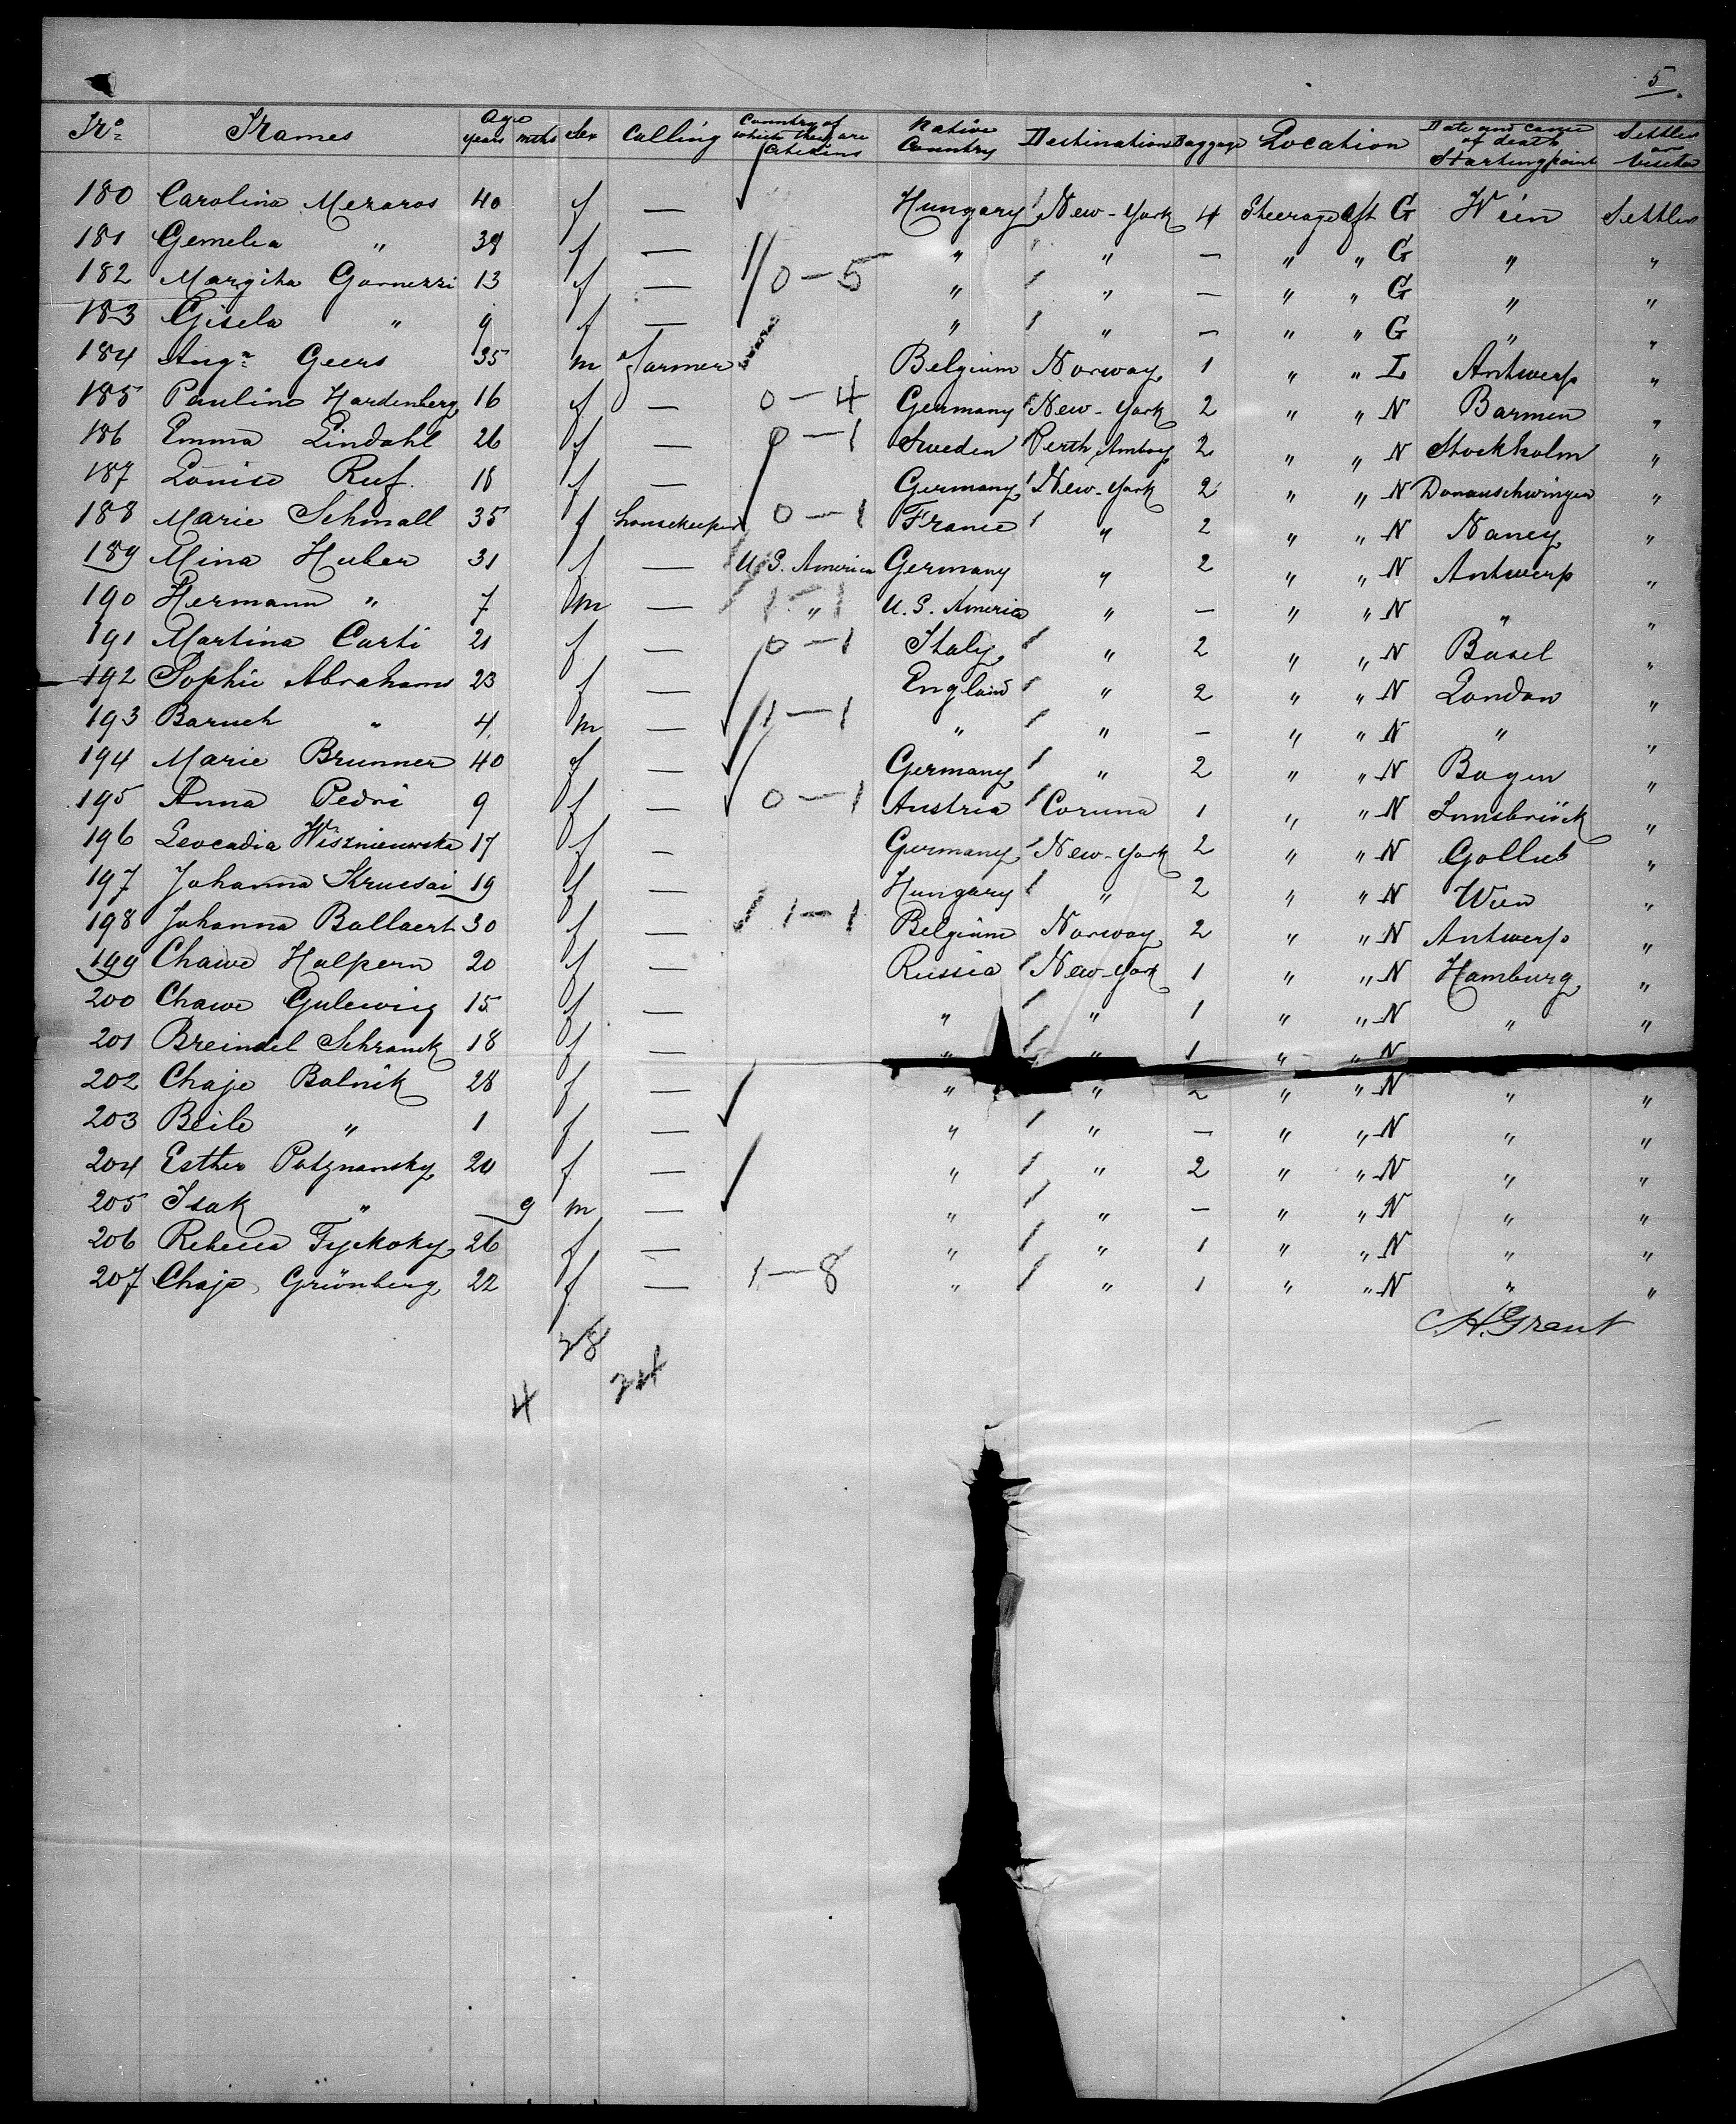 5.
No Names Age years mths Sex Calling Country of which they are Citizens Native Country Destination Baggage Location Date and cause of death Startingpoint Settler or Visitor
180 Carolina Mezaros 40 f — Hungary New-York 4 Steerage aft G Wien Settler
181 Gemelia " 39 f — " " — " " G " "
182 Margitha 13 f — 0-5 " " — " " G " "
183 Gisela " 9 f — " " — " " G " "
184 Augn Geers 35 m farmer Belgium Norway 1 " " L Antwerp "
185 Pauline Hardenberg 16 f — 0-4 Germany New-York 2 " " N Barmen "
186 Emma Lindahl 26 f — 0-1 Sweden Perth Amboy 2 " " N Stockholm "
187 Louise Ruf. 18 f — Germany New-York 2 " " N Donauschwingen "
188 Marie Schmall 35 f housekeeper 0-1 France " 2 " " N Nancy "
189 Mina Huber 31 f — U.S. America Germany " 2 " " N Antwerp "
190 Hermann " 7 m — 1-1 " U.S. America " — " " N " "
191 Martina Carti 21 f — 0-1 Italy " 2 " " N Basel "
192 Sophie Abrahams 23 f — England " 2 " " N London "
193 Baruch " 4 m — 1-1 " " — " " N " "
194 Marie Brunner 40 f — Germany " 2 " " N Bogen "
195 Anna Pedri 9 f — 0-1 Austria Coruna 1 " " N Innsbrück "
196 Leocadia Wiszniewska 17 f — Germany New-York 2 " " N Gollub "
197 Johanna 19 f — Hungary " 2 " " N Wien "
198 Johanna Ballaert 30 f — 1-1 Belgium Norway 2 " " N Antwerp "
199 Chawe Halpern 20 f — Russia New-York 1 " " N Hamburg "
200 Chawe Gulewig 15 f — " " 1 " " N " "
201 Breindel Schranck 18 f — " " 1 " " N
202 Chaje Balnik 28 f — " " 2 " " N " "
203 Beile " 1 f — " " — " " N " "
204 Esther Potznansky 20 f — " " 2 " " N " "
205 Isak " — 9 m — " " — " " N " "
206 Rebecca Tyckoky 26 f — " " 1 " " N " "
207 Chaje Grünberg 22 f — 1-8 " " 1 " " N " "
C.H. Grant
28
4